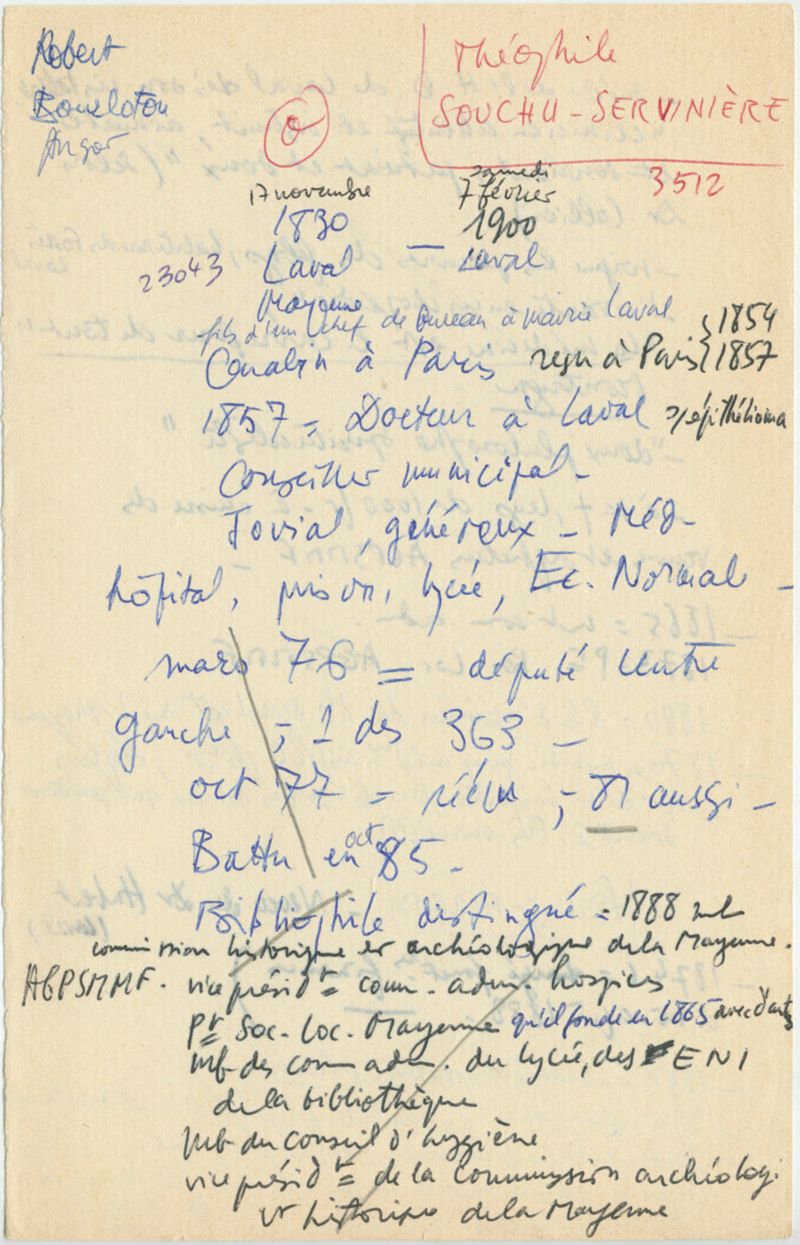 Robert
Angot
Théophile
SOUCHU-SERVINIÈRE
3512
17 novembre
samedi
7 février
1830
1900
23043
Laval — Laval
Mayenne
fils d'un chef de bureau à mairie Laval
Carabin à Paris reçu à Paris { 1854
1857
1857 = Docteur à Laval s/épithélioma
Conseiller municipal -
Jovial, généreux - Méd-
hôpital, prison, lycée, Ec. Normale -
mars 76 = député centre
gauche ; 1 des 363 -
oct 77 = réélu ; 81 aussi -
Battu en oct 85 -
Bibliophile distingué = 1888 mb
commission historique et archéologique de la Mayenne.
AGPSMMF. vice présidt = comm. adm. hospices
Pt Soc. Loc. Mayenne qu'il fonde en 1865 avec d'autres
mb des comm adm. du lycée, des ENI
de la bibliothèque
mb du conseil d'hygiène
vice présidt = de la commission archéologi
et historique de la Mayenne